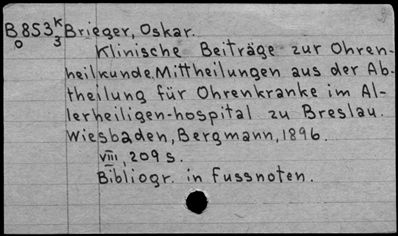 B853K Brieger, Oskar.
0 3 Klinische Beiträge zur Ohren-
heilkunde. Mittheilungen aus der Ab-
theilung für Ohrenkranke im Al-
lerheiligen-hospital zu Breslau.
Wiesbaden, Bergmann, 1896.
VIII, 209 s.
Bibliogr. in Fussnoten.